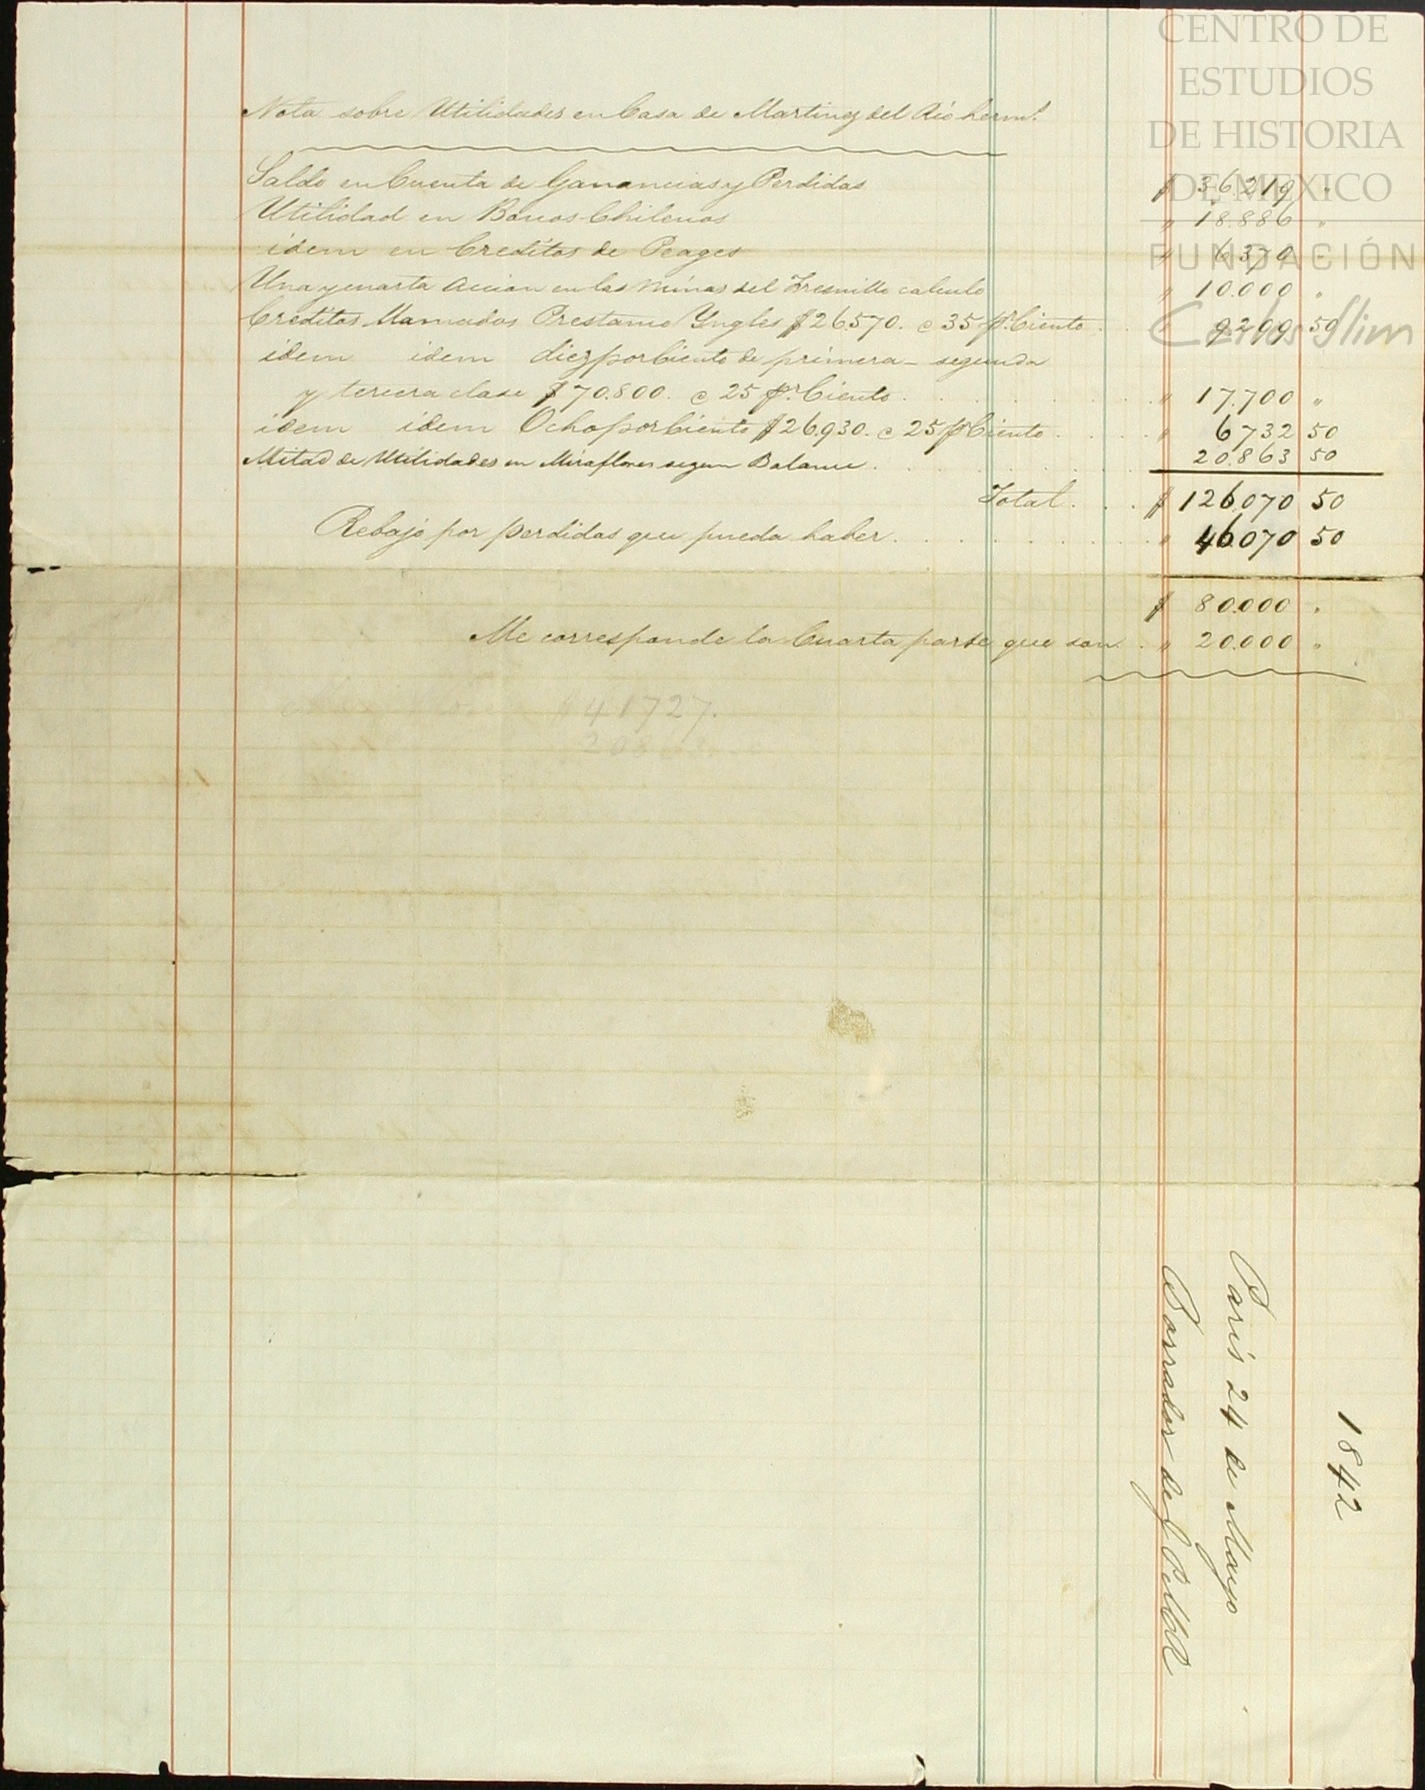 CENTRO DE
ESTUDIOS
DE HISTORIA
DE MEXICO
FUNDACIÓN
Carlos Slim
Nota sobre Utilidades en Casa de Martinez del Rio herms.
Saldo en Cuenta de Ganancias y Perdidas $ 36.219 "
Utilidad en Bonos Chilenos " 18.886 "
idem en Creditos de Peages " 6370 "
Una y cuarta Accion en las Minas del Fresnillo calculo " 10.000 "
Creditos llamados Prestamo Yngles $26.570. @ 35 pr. Ciento . . " 9299 50
idem idem diez por Ciento de primera - segunda
y tercera clase $70.800. @ 25 pr. Ciento . . . . " 17.700 "
idem idem Ocho por Ciento $26.930. @ 25 pr Ciento . . . " 6732 50
Mitad de Utilidades en Miraflores segun Balance . . . 20.863 50
Total. . . $ 126.070 50
Rebajo por perdidas que pueda haber . . . . " 46.070 50
$ 80.000 "
Me corresponde la Cuarta parte que son . . " 20.000 "
$ 41727.
208
1842
Paris 24 de Mayo
Borrador de